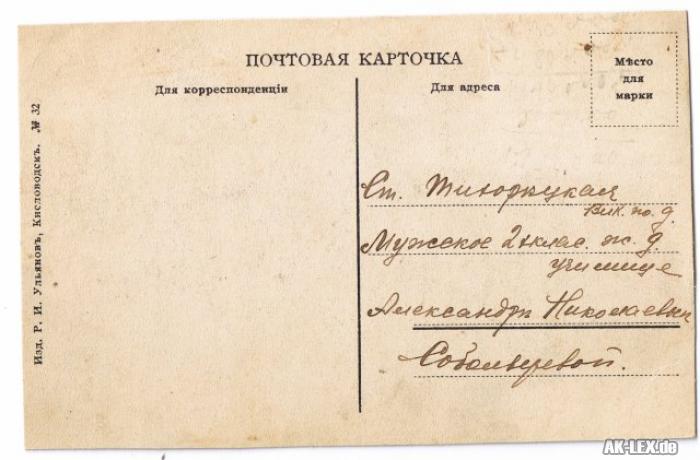 ПОЧТОВАЯ КАРТОЧКА
Для корреспонденціи
Для адреса
Мѣсто
для
марки
Изд. Р. И. Ульяновъ, Кисловодскъ. № 32
Ст. Тихорѣцкая
Влк. ж. д.
Мужское 2хклас. ж. д.
училище
Александрѣ Николаевнѣ
Соболыревой.
AK-LEX.de